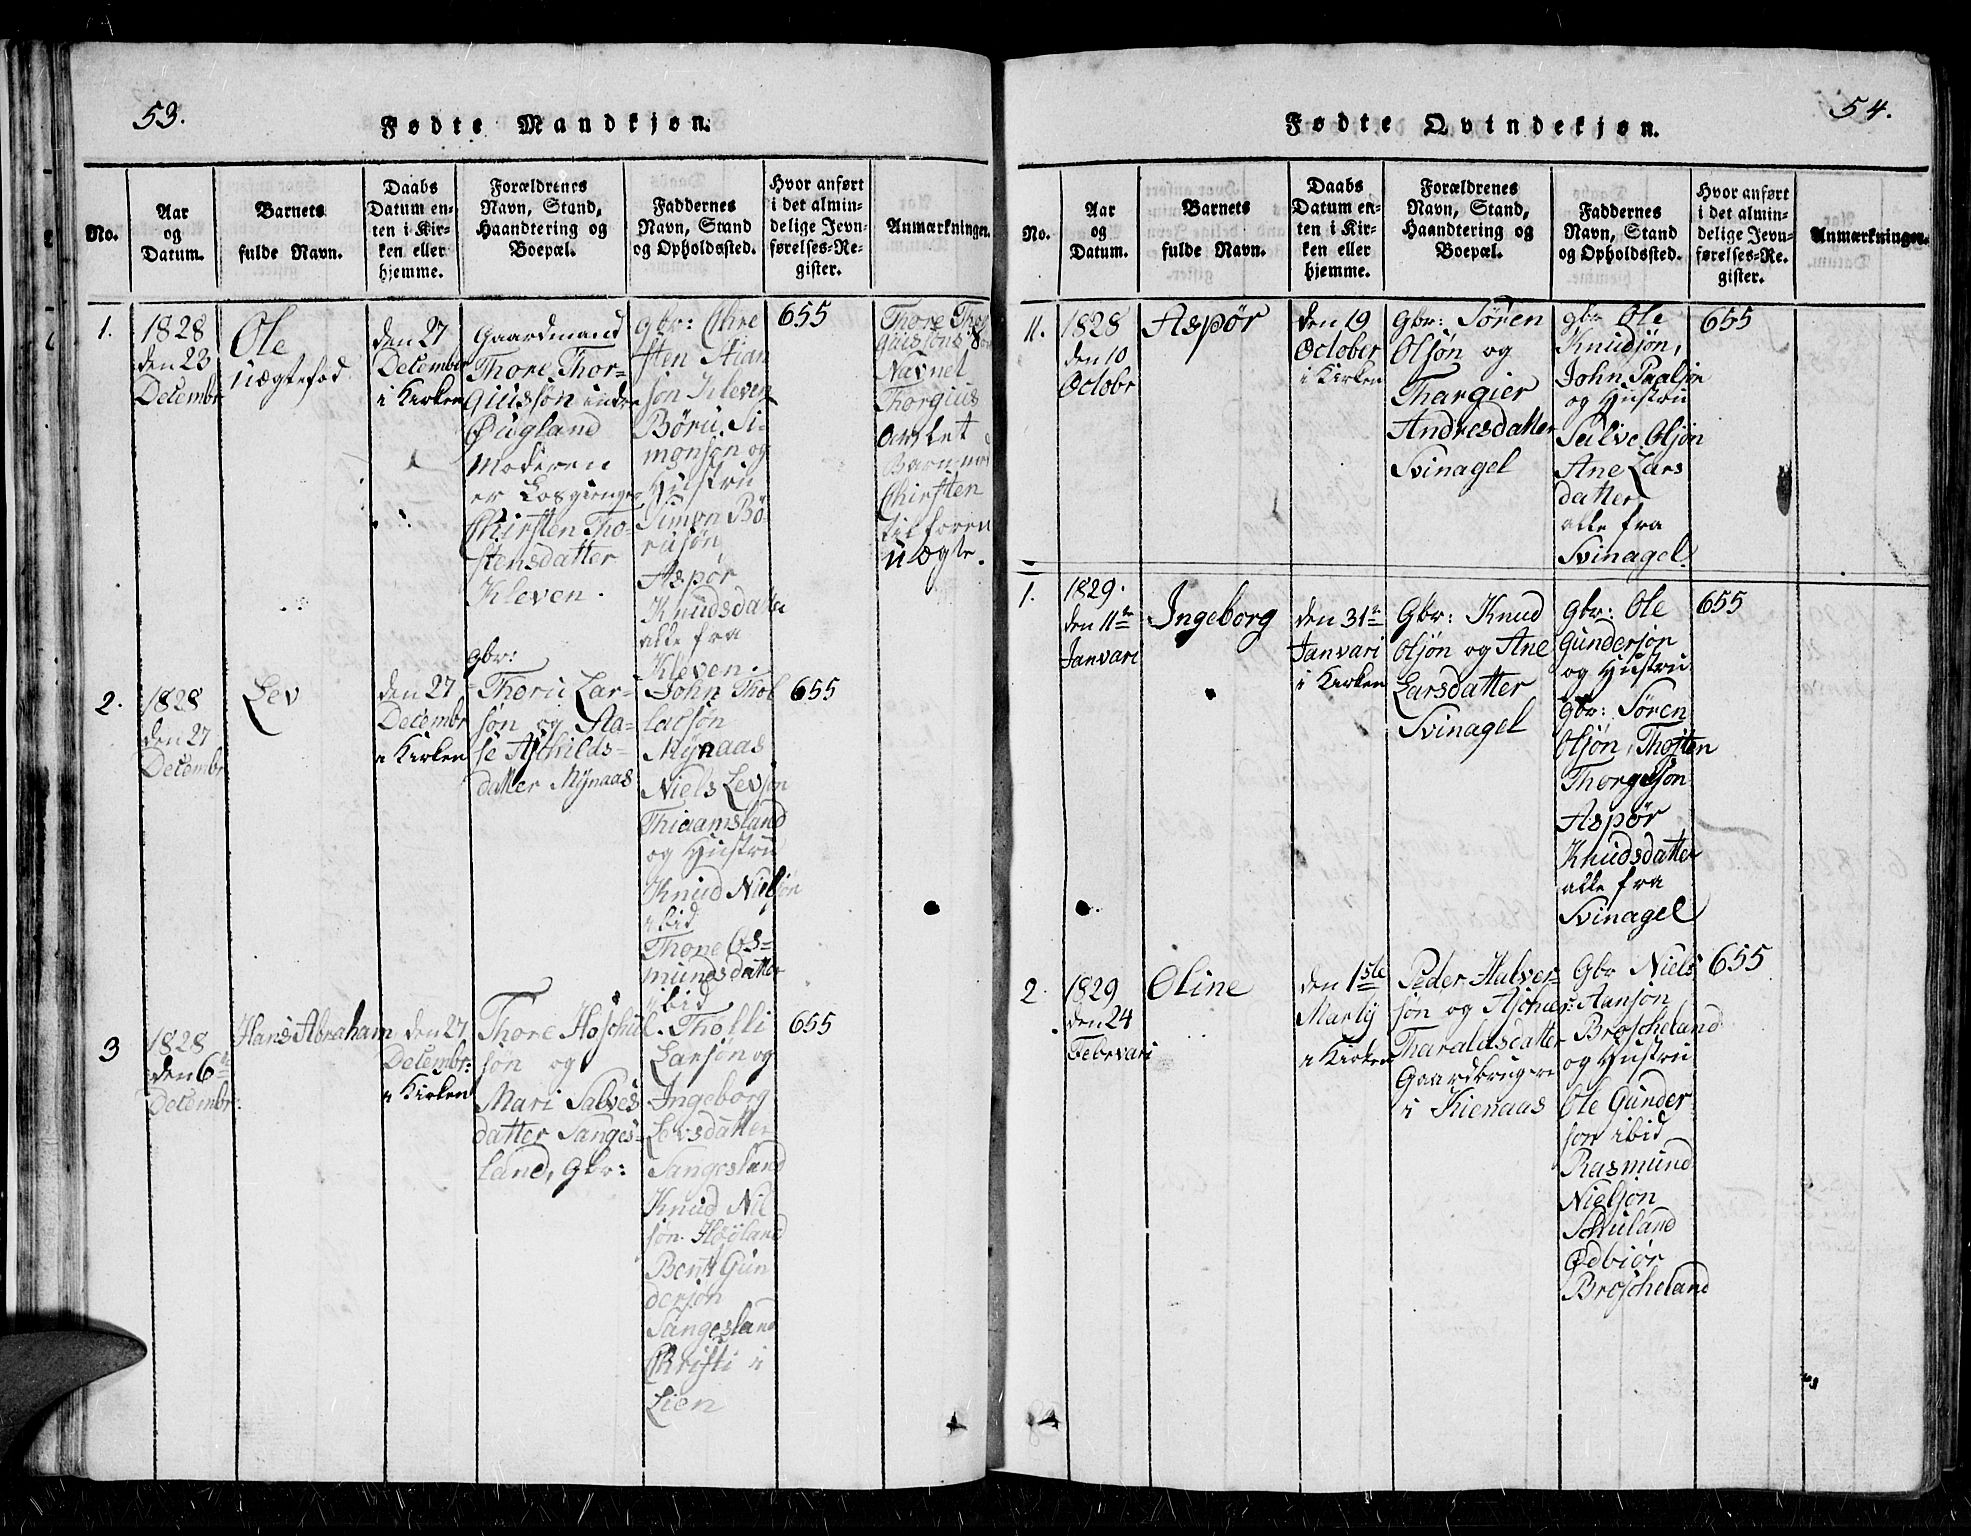 53.
Fødte Mandkjøn.
No.
Aar
og
Datum.
Barnets
fulde Navn.
Daabs
Datum en-
ten i Kir-
ken eller
hjemme.
Forældrenes
Navn, Stand,
Haandtering og
Boepæl.
Faddernes
Navn, Stand
og Opholdssted.
Hvor anført
i det almin-
delige Jevn-
førelses-Re-
gister.
Anmærkninger.
1.
1828
den 23
Decembr
Ole
uægtefød
den 27
December
i Kirken
Gaardmand
Thore Thor-
giusøn indre
Øugland
Moderen
er Losgienger
Chirsten Tho-
stensdatter
Kleven.
gbr: Chre
sten Stian
søn Kleven
Børu Si-
monsøn og
Hustru
Simon Bö-
rusøn
Aspør
Knudsdatter
alle fra
Kleven.
655
Thore
Navnet
Thorgius
Barn
Chirsten
tilforen
uægte.
2.
1828
den 27
Decembr
Lev
den 27
Decembr
i Kirken
gbr:
Theru Lar-
søn og Aa-
se Aschilds-
datter Mÿnaas
John Thol
lacsøn
Mÿnaas
Niels Levsøn
Thiaamsland
og Hustru
Knud Nielsøn
ibid
Thone Os-
mundsdatter
ibid
655
3
1828
den 6te
Decembr:
Hans Abraham
den 27
Decembr:
i Kirken
Thore Høschul
søn og
Mari Salves
datter Sanges-
land, gbr:
Tholli
Larsøn og
Ingeborg
Levsdatter
Sangesland
Knud Nil
søn Høÿland
Bent Gun
dersøn
Sangesland
Christi i
Lien
655
54.
Fødte Qvindekjøn.
No.
Aar
og
Datum.
Barnets
fulde Navn.
Daabs
Datum en-
ten i Kir-
ken eller
hjemme.
Forældrenes
Navn, Stand,
Haandtering og
Boepæl.
Faddernes
Navn, Stand
og Opholdssted.
Hvor anført
i det almin-
delige Jevn-
førelses-Re-
gister.
Anmærkninger.
11.
1828
den 10
Octobr
Aspør
den 19
October
i Kirken
gbr: Søren
Olsøn og
Thargier
Andresdatter
Svinagel
gbr Ole
Knudsøn,
John Paalsøn
og Hustru
Salve Olsøn
Ane Lars
datter,
alle fra
Svinagel.
655
1.
1829.
den 11te
Janvari
Ingeborg
den 31te
Janvari
i Kirken
Gbr: Knud
Olsøn og Ane
Larsdatter
Svinagel
gbr: Ole
Gundersøn
og Hustru
gbr: Søren
Olsøn, Thosten
Thorgesøn
Aspør
Knudsdatter
alle fra
Svinagel
655
2.
1829
den 24
Febrvari
Oline
den 1ste
Martij
i Kirken
Peder Halver-
søn og Aschier:
Tharaldsdatter
Gaardbrugere
i Kienaas
Gbr Niels
Aansøn
Broscheland
og Hustru
Ole Gunder
søn ibid
Rasmund
Nielsøn
Schuland
Ødbiør
Broscheland
655